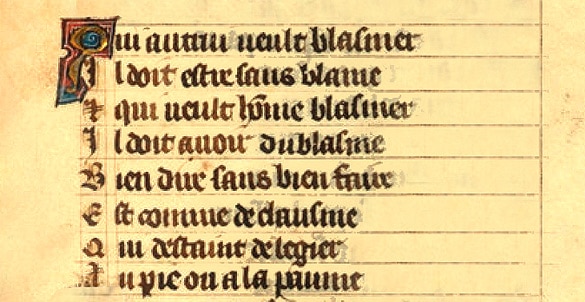 Qui autrui ueult blasmer
Il doit estre sans blame
Et qui ueult hōme blasmer
Il doit auoir du blasme
Bien dire sans bien faire
Est comme de clausme
Qui destaint de legier
Au pie ou a la paume